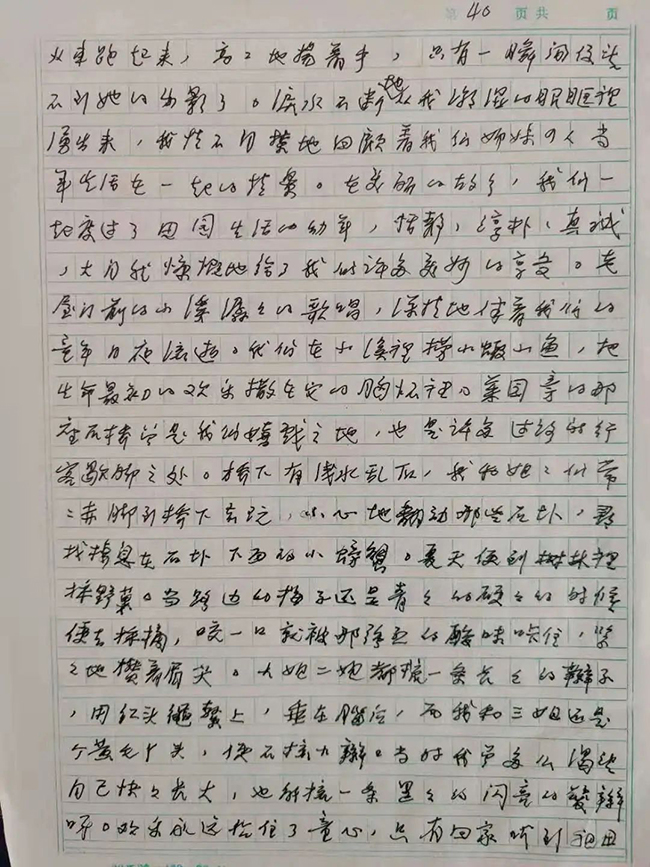 第 40 页共 页
火车跑起来，高々地扬着手，只有一瞬间便望
不到她的身影了。泪水不断地从我潮湿的眼眶裡
涌出来，我情不自禁地回顾着我们姊妹四人当
年生活在一起的情景。在美丽的故乡，我们一
起度过了田园生活的幼年，恬静、淳朴、真诚
，大自然慷慨地给了我们许多美妙的享受。老
屋门前的小溪潺々的歌唱，深情地伴着我们的
童年日夜流逝。我们在小溪裡捞小虾小鱼，把
生命最初的欢乐撒在它的胸怀裡。菜园旁的那
座石桥曾是我们嬉戏之地，也是许多过路的行
客歇脚之处。桥下有浅水乱石，我和姐々们常
々赤脚到桥下去玩，小心地翻动那些石块，尋
找栖息在石块下面的小螃蟹。夏天便到树林裡
採野菓。当路边的梅子还是青々的硬々的时候
便去採摘，咬一口就被那强烈的酸味呛住，紧
々地攒着眉头。大姐二姐都梳一条长々的辫子
，用红头绳繫上，垂在脑后，而我和三姐还是
个黄毛丫头，便不梳小辫。当时我曾多么渴望
自己快々长大，也能梳一条黑々的闪亮的髮辫
呀。欢乐永远拴住了童心，只有回家听到祖母